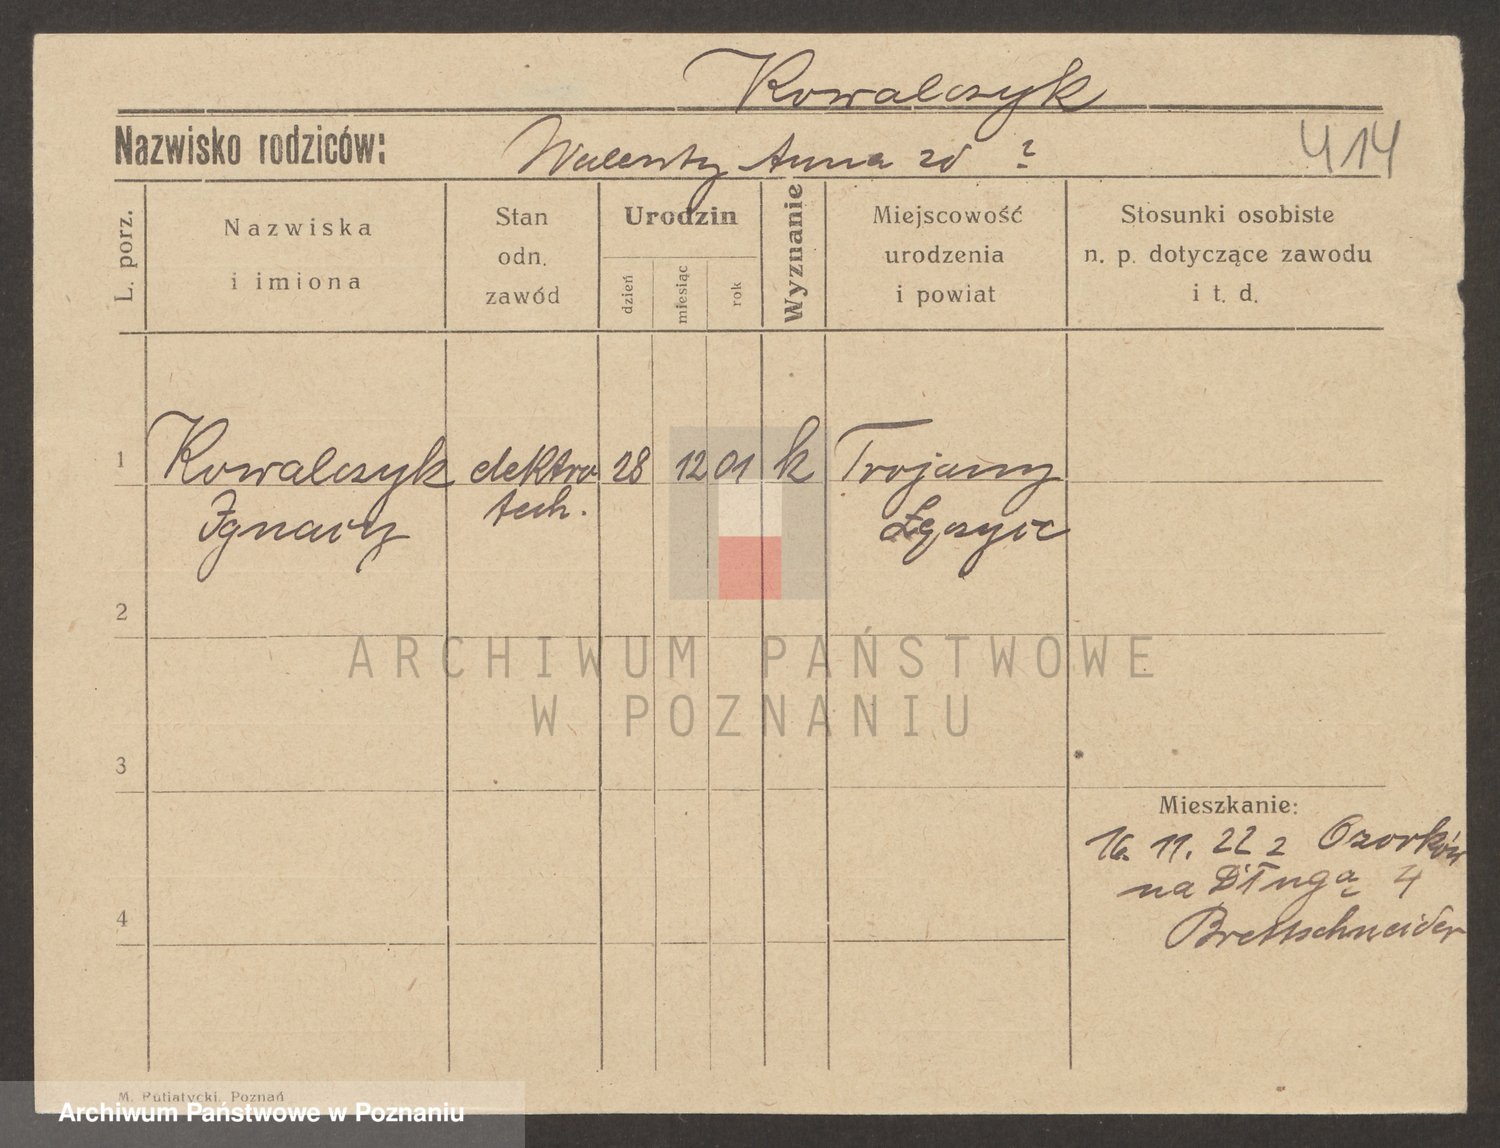 Kowalczyk
Nazwisko rodziców: Walenty Anna zd ?
414
L. porz.
Nazwiska
i imiona
Stan
odn.
zawód
Urodzin
dzień
miesiąc
rok
Wyznanie
Miejscowość
urodzenia
i powiat
Stosunki osobiste
n. p. dotyczące zawodu
i t. d.
1 Kowalczyk elektro 28 12 01 k Trojany
Ignacy tech. Łęczyc
2
3
Mieszkanie:
16. 11. 22 z Ozorków
na Długą 4
4
Brettschneider
M. Putiatycki, Poznań
ARCHIWUM PAŃSTWOWE
W POZNANIU
Archiwum Państwowe w Poznaniu